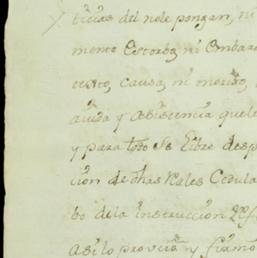 ticias del nole pongan, ni
mento Estorbo, ni Embara
texto, causa, ni motibo,
aiuda y asistencia quele
y para todo se libre desp
cion de dhas Rales Cedula
bo dela instruccion
asi lo proveian y firmo